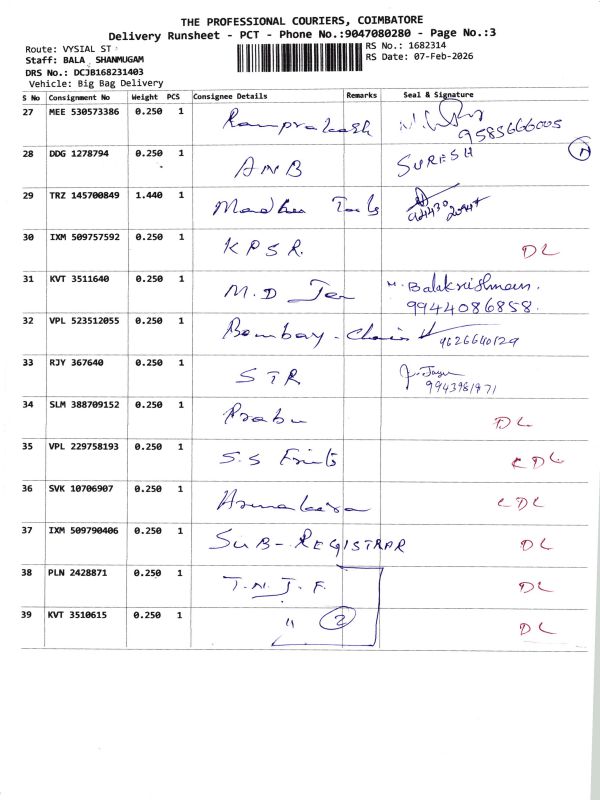 THE PROFESSIONAL COURIERS, COIMBATORE
Delivery Runsheet - PCT - Phone No.:9047080280 - Page No.:3
Route: VYSIAL ST
RS No.: 1682314
Staff: BALA SHANMUGAM
RS Date: 07-Feb-2026
DRS No.: DCJB168231403
Vehicle: Big Bag Delivery
S No Consignment No Weight PCS Consignee Details Remarks Seal & Signature
27 MEE 530573386 0.250 1 Ramprakash 9585666005
28 DDG 1278794 0.250 1 ANB SURESH
29 TRZ 145700849 1.440 1 Madhu Tools
30 IXM 509757592 0.250 1 KPSR. DL
31 KVT 3511640 0.250 1 M.D M. Balakrishnan.
9944086858.
32 VPL 523512055 0.250 1 Bombay-Chain 9626640129
33 RJY 367640 0.250 1 STR
9943981971
34 SLM 388709152 0.250 1 Prabu DL
35 VPL 229758193 0.250 1 S.S DL
36 SVK 10706907 0.250 1 DL
37 IXM 509790406 0.250 1 SUB-REGISTRAR DL
38 PLN 2428871 0.250 1 T.N.J.F. DL
39 KVT 3510615 0.250 1 " 2 DL